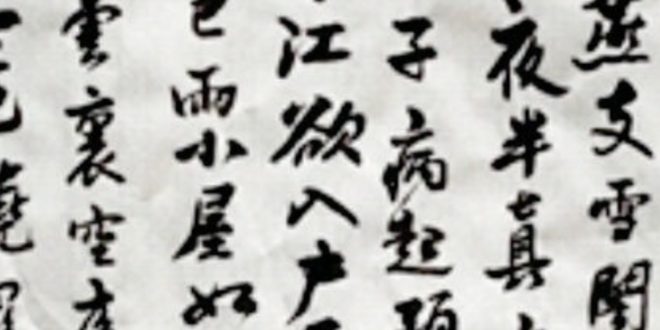 燕支雪闇
夜半真
子病起
江欲入户
已雨小屋如
雲裏空